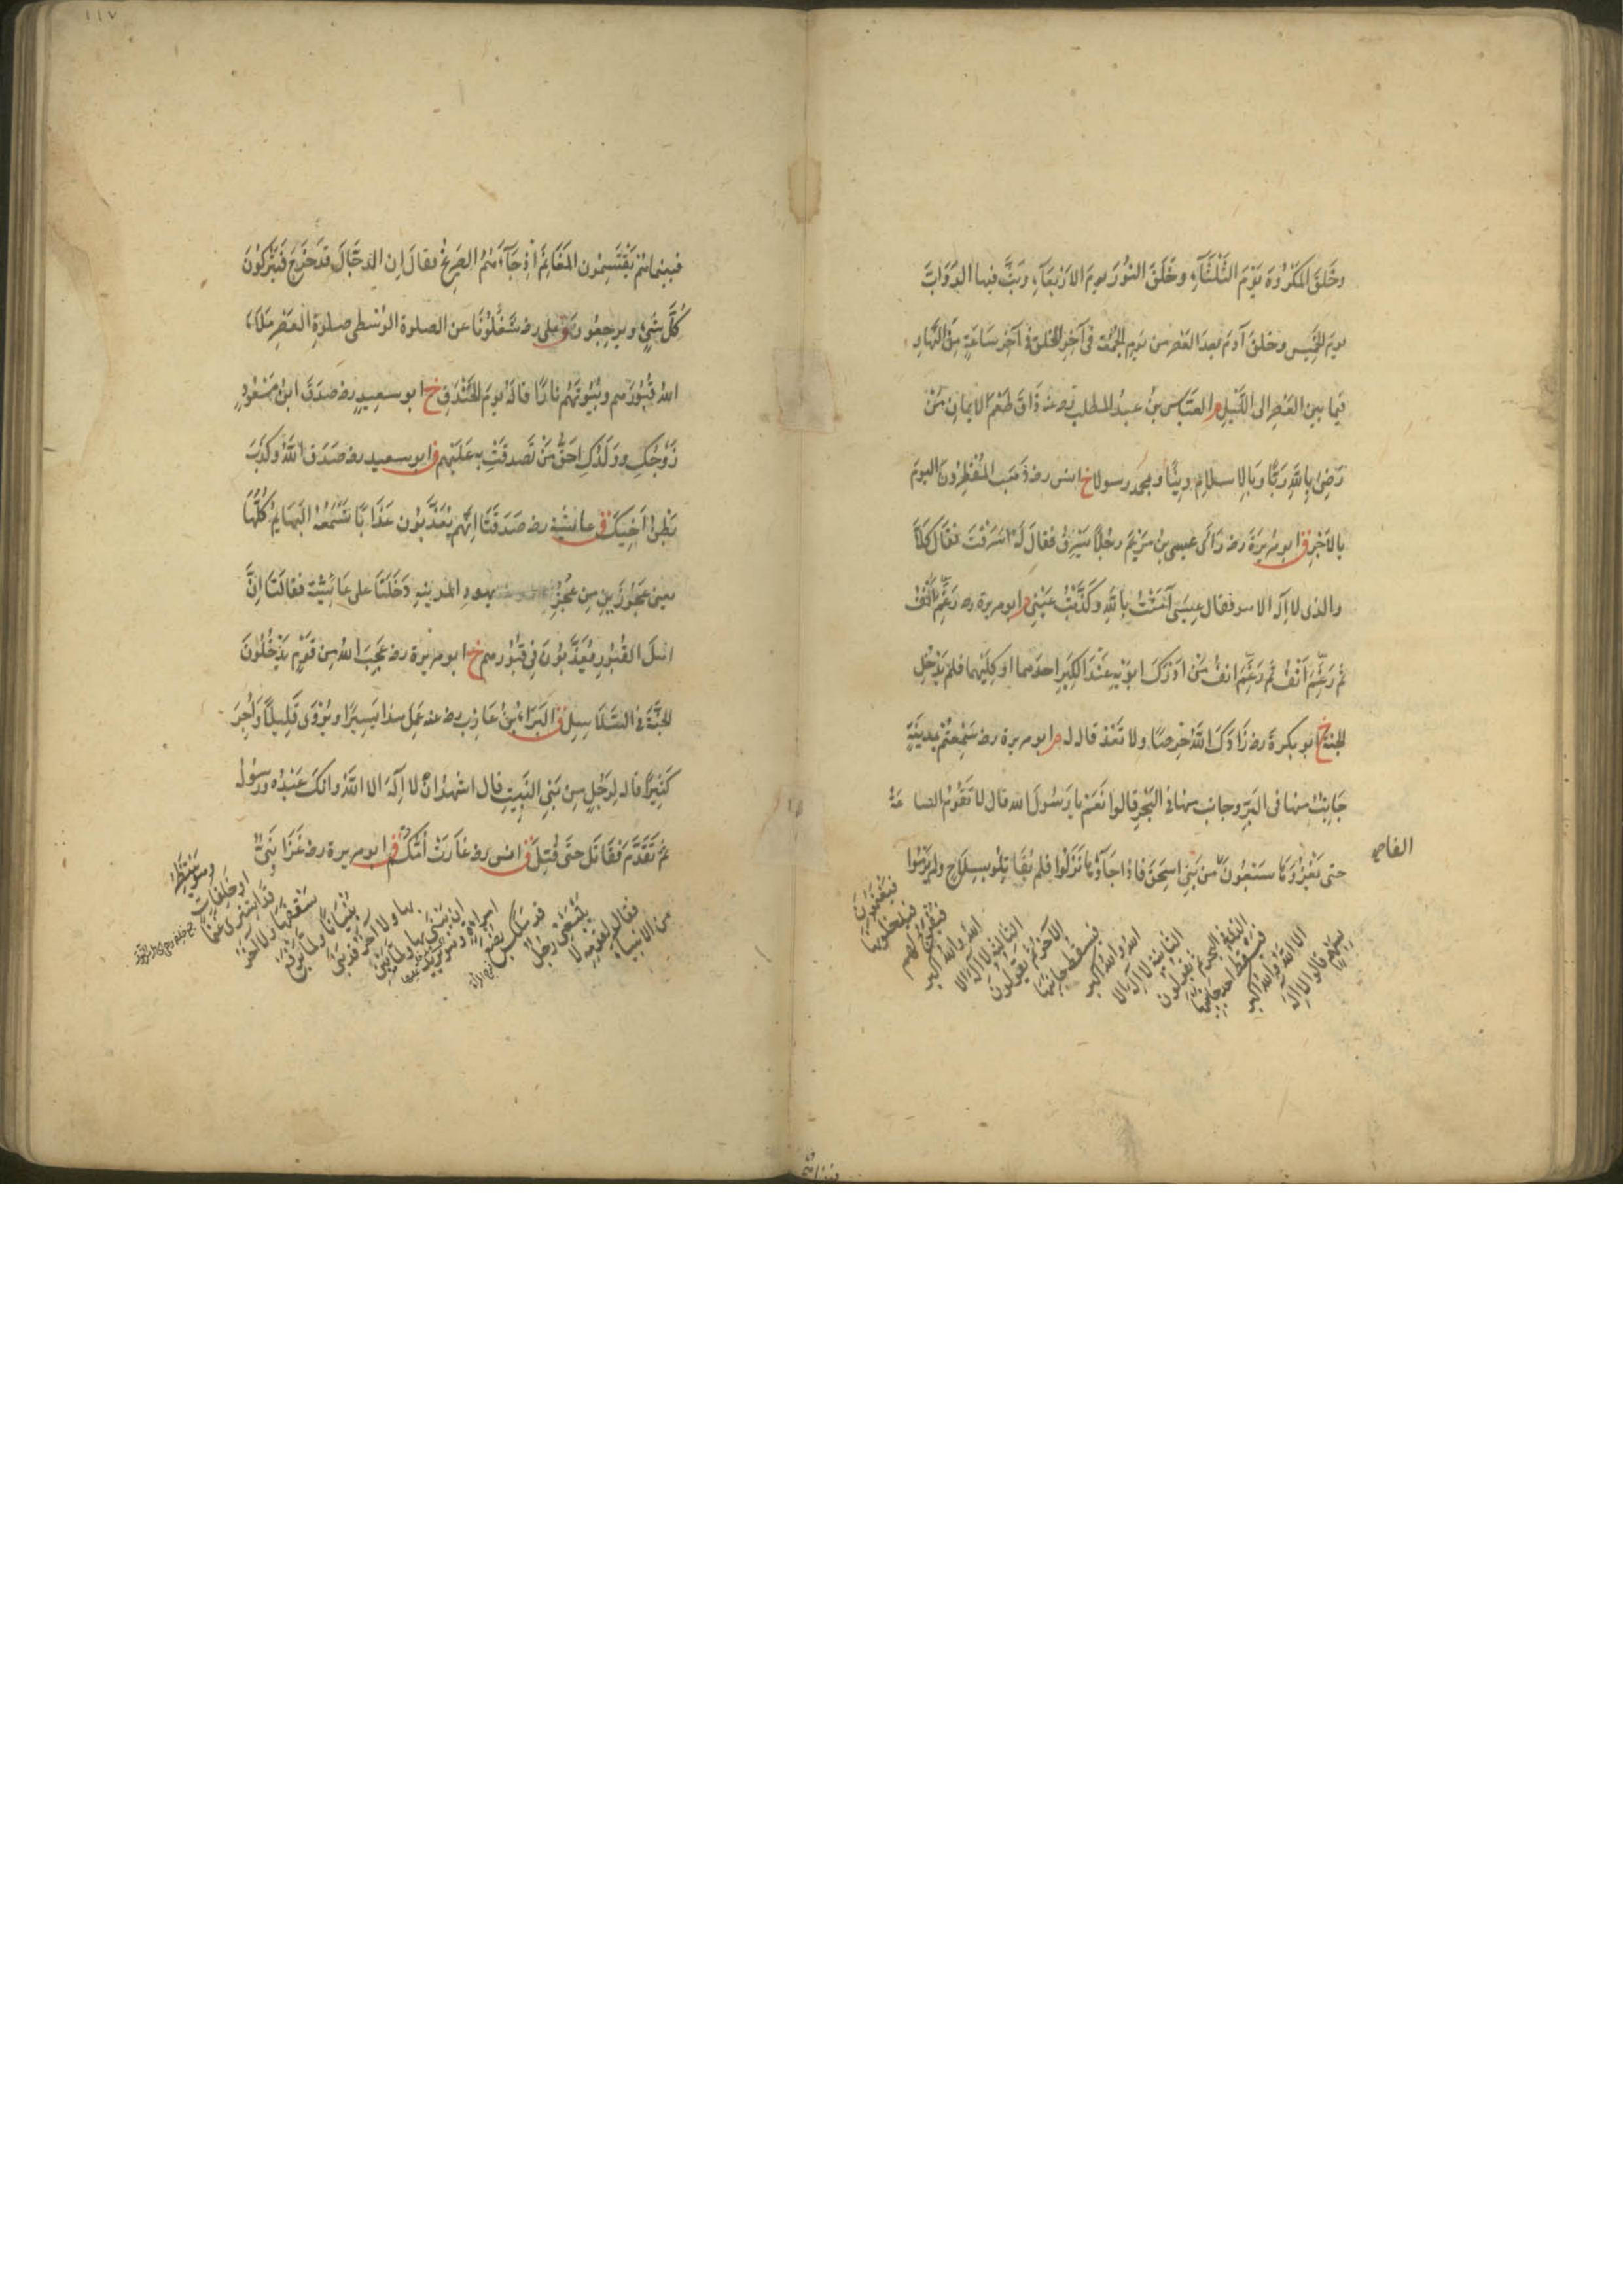 وخَلَقَ المَكْرُوهَ يَوْمَ الثَّلَثَاءِ وخَلَقَ النُّورَ يومَ الاَرْبِعَاءِ وبَثَّ فيها الدَّوَابَّ
يومَ الخَمِيسِ وخلقَ آدمَ بعدَ العَصْرِ من يَومِ الجُمُعَةِ فى آخِرِ الخلقِ فى آخِرِ سَاعَةٍ مِنَ النَّهَارِ
فيما بينَ العَصْرِ الى اللَّيلِ م العبّاسُ بنُ عبدِ المطلب رضى عنه ذَاقَ طَعْمَ الايمانِ مَنْ
رَضِىَ بِاللهِ رَبًّا وبالاِسلامِ دِينًا وبمحمد رسولا خ انس رضه ذَهَبَ المُفْطِرُونَ اليومَ
بالاَجْرِ ق ابو هُرَيرَةَ رضه رَاَى عيسى بنُ مَرْيَمَ رجُلاً يَسْرِقُ فقالَ لَهُ اَسَرَقْتَ فقَالَ كَلاَّ
والذى لا اِلهَ الا هو فقال عِيسَى آمَنْتُ بِاللهِ وكَذَّبْتُ عَيْنِى م ابو هريرة رضه رَغِمَ اَنْفُ
ثم رَغِمَ اَنْفُ ثم رَغِمَ انفُ مَنْ اَدْرَكَ ابَوَيْهِ عِنْدَ الكِبَرِ احدَهما او كِلَيْهِما فلم يَدْخُلِ
الجنةَ خ ابو بكرةَ رضه زَادَكَ اللهُ حِرصًا ولا تَعُدْ قاله له م ابو هريرة رضه سَمِعْتُمْ بمدِينَةٍ
جَانِبٌ منها فى البَرِّ وجانب منها فى البَحْرِ قالوا نَعَمْ يا رَسُولَ الله قال لا تَقُومُ الساعَةُ
حتى يَغْزُوَهَا سَبْعُونَ الفا من بَنِى اِسحقَ فاذا جَآؤُهَا نَزَلُوا فلم يُقَاتِلُوا بِسِلاحٍ ولم يَرْمُوا
بِسَهْمٍ قالوا لا اِلهَ
الا اللهُ واللهُ اكبر
فيَسْقُطُ احد جَانِبَيْهَا
الذى فى البحر ثم يقولون
الثانيةَ لا اِلهَ الا
اللهُ واللهُ اكبر
فيَسقُطُ جانِبُهَا
الآخَرُ ثم يقولُونَ
الثالثةَ لا اِلهَ الا
اللهُ واللهُ اكبر
فيُفَرَّجُ لهم
فيدخلونها
فيَغْنَمُونَ
١١٧
فبينما هم يَقْتَسِمُون المَغَانِمَ اِذْ جَآءَهُمُ الصَّرِيخُ فقالَ اِن الدجَّالَ قد خَرَجَ فَيَتْرُكُونَ
كُلَّ شىءٍ ويرجِعُون ق على رضه شَغَلُونَا عن الصلوة الوُسْطَى صلوةِ العَصْرِ مَلاَءَ
اللهُ قُبُورَهم وبُيُوتَهُم نارًا قاله يومَ الخَنْدَقِ خ ابو سعيدٍ رضه صَدَقَ ابنُ مَسْعُودٍ
زَوْجُكِ ووَلَدُكِ اَحَقُّ مَنْ تَصَدقْتِ به عَلَيْهِم ق ابو سعيد رضه صَدَقَ اللهُ وكَذَبَ
بَطْنُ اَخِيكَ ق عائشة رضه صَدَقَتَا اِنَّهُم يُعَذَّبُون عَذَابًا تَسْمَعُهُ البَهَايِمُ كُلُّهَا
يعنى عَجُوزَينِ مِن عُجُزِ يهودِ المدينةِ دَخَلَتَا على عَائِشَةَ فقالَتَا اِنَّ
اهلَ القُبُورِ يُعَذَّبُونَ فى قُبُورِهم خ ابو هريرة رضه عَجِبَ اللهُ مِن قَوْمٍ يَدْخُلُونَ
الجَنَّةَ فى السَّلاَسِلِ ق البَرَاءُ بنُ عازِبٍ رضه عنه عَمِلَ هذا يَسِيرًا ويُرْوَى قَلِيلاً وَاُجِرَ
كَثِيرًا قاله لِرَجُلٍ مِن بَنِى النَّبِيتِ قال اَشْهَدُ اَنْ لا اِلهَ الا اللهُ وانكَ عَبْدُه ورسُولُه
ثم تَقَدَّمَ فَقَاتَل حتى قُتِلَ ق انس رضه غَارَتْ اُمُّكُمْ ق ابو هريرة رضه غَزَا نَبِىٌّ
من الانبياء
فقال لقومه لا
يَتْبَعْنِى رجُلٌ
قد مَلَكَ بُضْعَ
امرَاَةٍ وهو يريد
ان يَبْنِى بها ولَمَّا يَبْنِ
بها ولا آخَرُ قد بَنَى
بُنْيَانًا ولَمَّا يَرْفَعْ
سُقُفَهَا ولا آخَرُ
قد اشْتَرَى غَنَمًا
او خَلِفَاتٍ
وهو يَنْتَظِرُ